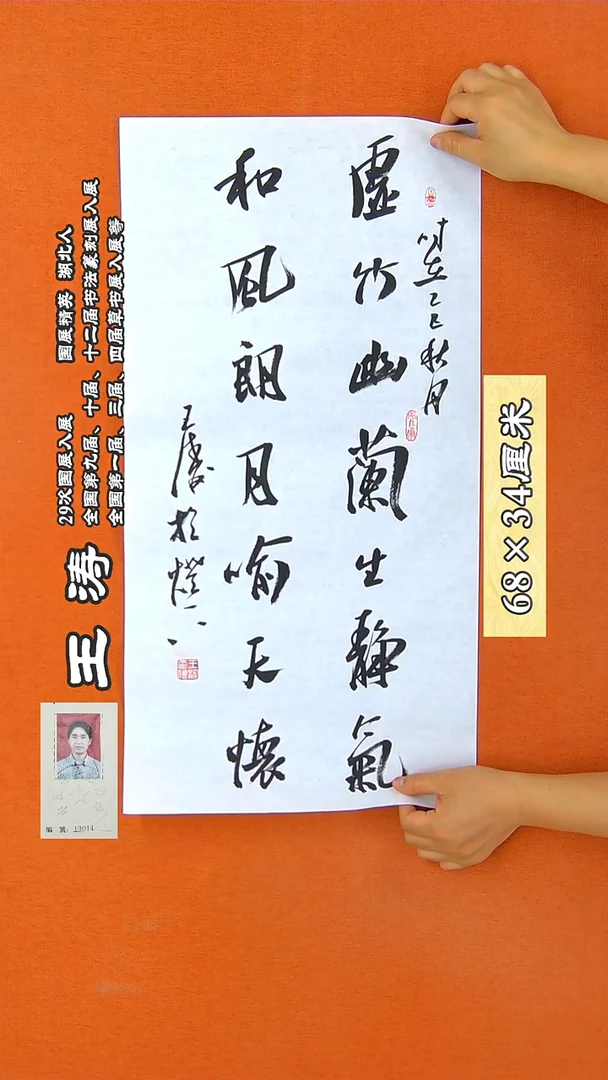 虛竹幽蘭生靜氣
和風朗月喻天懷
時在乙巳秋月
王濤於
68×34厘米
王涛
29次国展入展 国展精英 湖北人
全国第九届、十届、十二届书法篆刻展入展
全国第一届、三届、四届草书展入展等
编号: